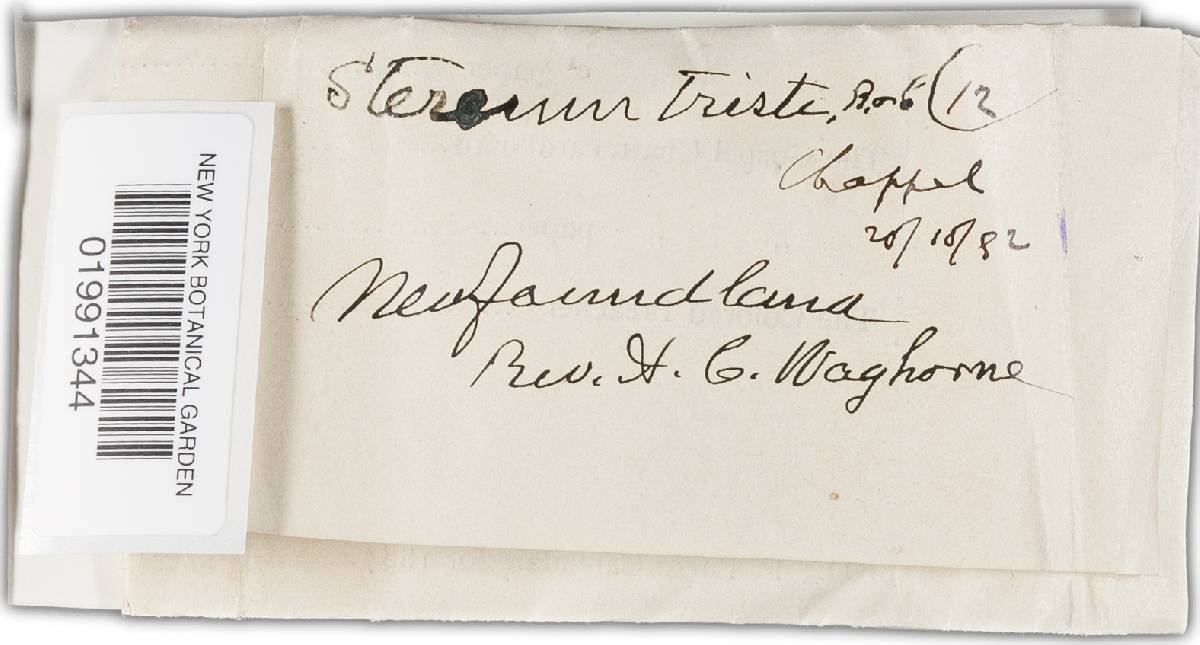 Stereum triste, B. & C (12
Chappel
20/10/92
Newfoundland
Rev. A. C. Waghorne
NEW YORK BOTANICAL GARDEN
01991344